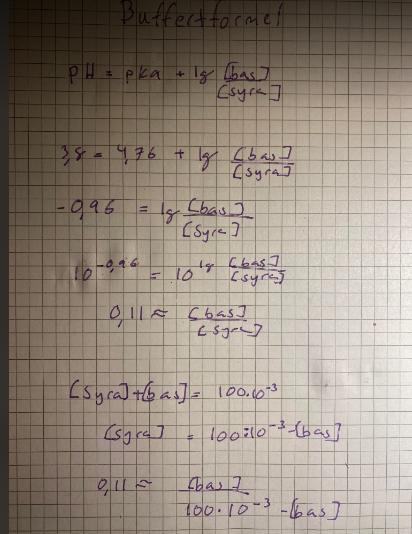 Buffertformel
pH = pka + lg [bas]/[syra]
3,8 = 4,76 + lg [bas]/[syra]
-0,96 = lg [bas]/[syra]
10^-0,96 = 10^lg [bas]/[syra]
0,11 ≈ [bas]/[syra]
[syra]+[bas] = 100·10^-3
[syra] = 100·10^-3-[bas]
0,11 ≈ [bas]/100·10^-3 -[bas]